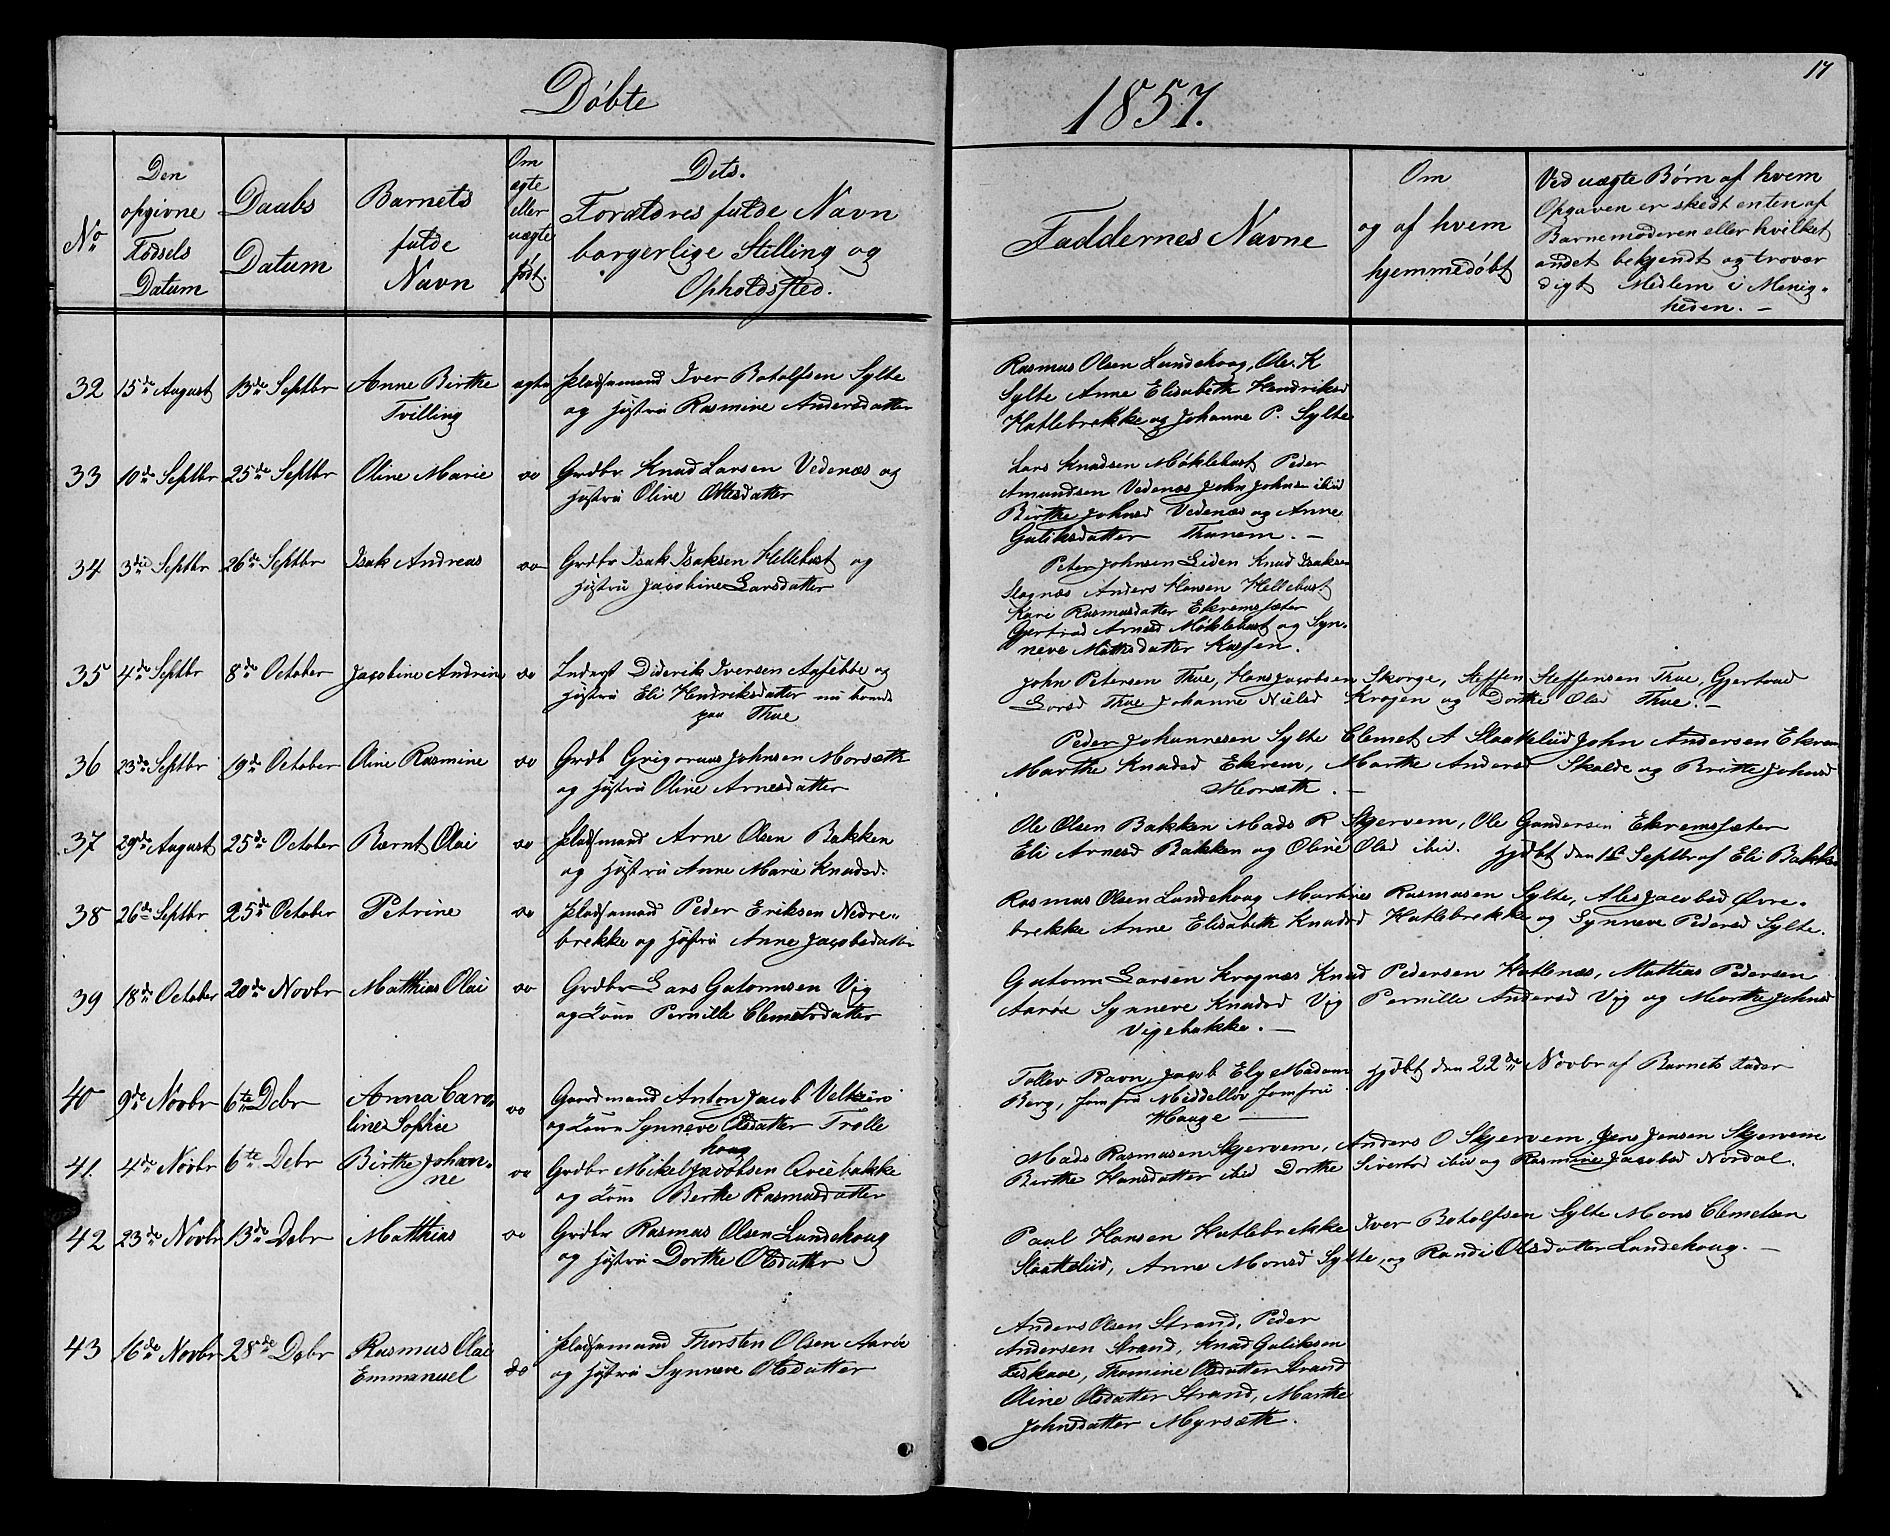 Døbte
1857.
17
No
Den
opgivne
Fødsels
Datum
Daabs
Datum
Barnets
fulde
Navn
Om
ægte
eller
uægte
født.
Dets.
Forældres fulde Navn
borgerlige Stilling og
Opholdssted.
Faddernes Navne
Om
og af hvem
hjemmedøbt
Ved uægte Børn af hvem
Opgaven er skedt enten af
Barnemoderen eller hvilket
andet bekjendt og trovær
digt Medlem i Menig-
heden. -
32 15de August 13de Septbr Anne Birthe ægte Pladsmand Iver Botolfsen Sylte
Tvilling og Hustru Rasmine Andersdatter
Rasmus Olsen Lundehoug, Ole K
Sylte Anne Elisabeth Hendriksd
Hatlebrekke og Johanne P. Sylte
33 10de Septbr 25de Septbr Oline Marie do Grdbr Knud Larsen Vedenæs og
Hustru Oline Ottesdatter
Lars Knudsen Møklebust Peder
Amundsen Vedenæs John Johnsen ibid
Birthe Johnsd Vedenæs og Anne
Guliksdatter Thunem. -
34 3die Septbr 26de Septbr Isak Andreas do Grdbr Isak Isaksen Hellebust og
Hustru Jacobine Larsdatter
Peter Johnsen Liden Knud Isaksen
Slagnæs Anders Hansen Hellebust
Kari Rasmusdatter Ekremssæter
Gjertrud Arnesd Møklebust og Syn-
neve Mathisdatter
35 4de Septbr 8de October Jacobine Andrine do Inderst Diderik Iversen og
Hustru Eli Hendriksdatter nu boende
paa Thue
John Petersen Thue, Hans Jacobsen Skorge, Steffen Steffensen Thue, Gjertrud
Larsd Thue Johanne Nielsd Krogen og Dorthe Olsd Thue. -
36 23de Septbr 19de October Oline Rasmine do Grdb Grigorius Johnsen Morsæth
og Hustru Oline Arnesdatter
Peder Johannesen Sylte Clemet A Slaatteliid John Andersen Ekrem
Marthe Knudsd Ekrem, Marthe Andersd Skolde og Brithe Johnsd
Morsæth. -
37 29de August 25de October Bernt Olai do Pladsmand Arne Olsen Bakken
og Hustru Anne Marie Knudsd.
Ole Olsen Bakken Mads R Skjervem, Ole Gundersen Ekremssæter
Eli Arnesd Bakken og Oline Olsd ibid. Hjdbt den Septbr af Eli Bakken
38 26de Septbr 25de October Petrine do Pladsmand Peder Eriksen Nedre-
brekke og Hustru Anne Jacobsdatter
Rasmus Olsen Lundehoug Martinus Rasmusen Sylte, Ales Jacobsd Øvre-
brekke Anne Elisabeth Knudsd Hatlebrekke og Synneve Pedersd Sylte.
39 18de October 20de Novbr Matthias Olai do Grdbr Lars Gutormsen Vig
og Kone Pernille Clemetsdatter
Gutorm Larsen Krognæs Knud Pedersen Hatlenæs, Mattias Pedersen
Aarøe Synneve Knudsd Vig Pernille Andersd Vig og Marthe Johnsd
Vigebakke. -
40 9de Novbr 6te Debr Anna Caro- do Gaardmand Anton Jacob Veltzin
line Sophie og Kone Synneve Olsdatter Trolle
houg
Tollev Ravn, Jacob Ely Madam
Berg, Jomfru Meddelbø Jomfru
Hauge
Hjdbt den 22de Novbr af Barnets Fader
41. 4de Novbr 6te Debr Birthe Johan- do Grdbr Mikel Jacobsen Qviebakke
ne og Kone Berthe Rasmusdatter
Mads Rasmusen Skjervem, Anders O Skjervem, Jens Jensen Skjervem
Berthe Hansdatter ibid Dorthe Sivertsd ibid og Rasmine Jacobsd Nordal.
42 23de Novbr 13de Debr Matthias do Grdbr Rasmus Olsen Lundehoug
og Hustru Dorthe Olsdatter
Paul Hansen Hatlebrekke Iver Botolfsen Sylte Mons Clemetsen
Slaatteliid, Anne Monsd Sylte, og Randi Olsdatter Lundehoug. -
43 16de Novbr 28de Debr Rasmus Olai do Pladsmand Thorsten Olsen Aarøe
Emmanuel og Hustru Synneve Olsdatter
Anders Olsen Strand, Peder
Andersen Strand, Knud Guliksen
Leskave, Thomine Olsdatter Strand
Oline Olsdatter Strand, Marthe
Johnsdatter Myrsæth.